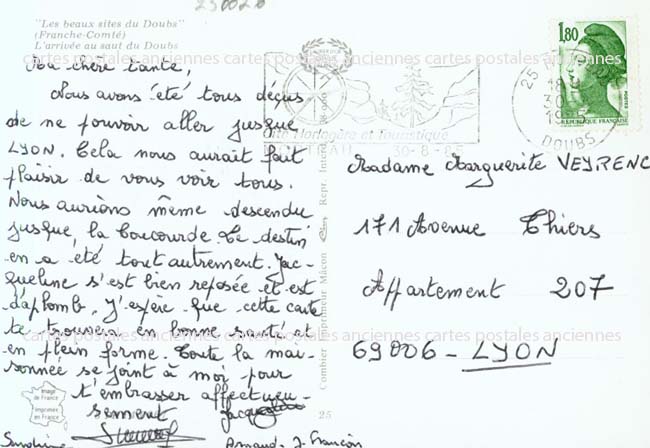 230026
"Les beaux sites du Doubs"
(Franche-Comté)
L'arrivée au saut du Doubs
Ma chère tante,
Nous avons été tous déçus
de ne pouvoir aller jusque
LYON. Cela nous aurait fait
plaisir de vous voir tous.
Nous aurions même descendu
jusque, la Coucourde. Le destin
en a été tout autrement. Jac-
queline s'est bien reposée et est
d'aplomb. J'espère que cette carte
te trouvera en bonne santé et
en plein forme. Toute la mai-
sonnée se joint à moi pour
t'embrasser affectueu-
sement
Jacqueline
Sandrine
Arnaud J. François
Image
de France
Imprimée
en France
Combier Imprimeur Mâcon
25
Cité Horlogère et Touristique
30-8-85
25
18
30
1985
DOUBS
1,80
REPUBLIQUE FRANCAISE
POSTES
Madame Marguerite VEYRENC
171 Avenue Thiers
Appartement 207
69006 - LYON
cartes postales anciennes cartes postales anciennes cartes postales anciennes
cartes postales anciennes cartes postales anciennes cartes postales anciennes